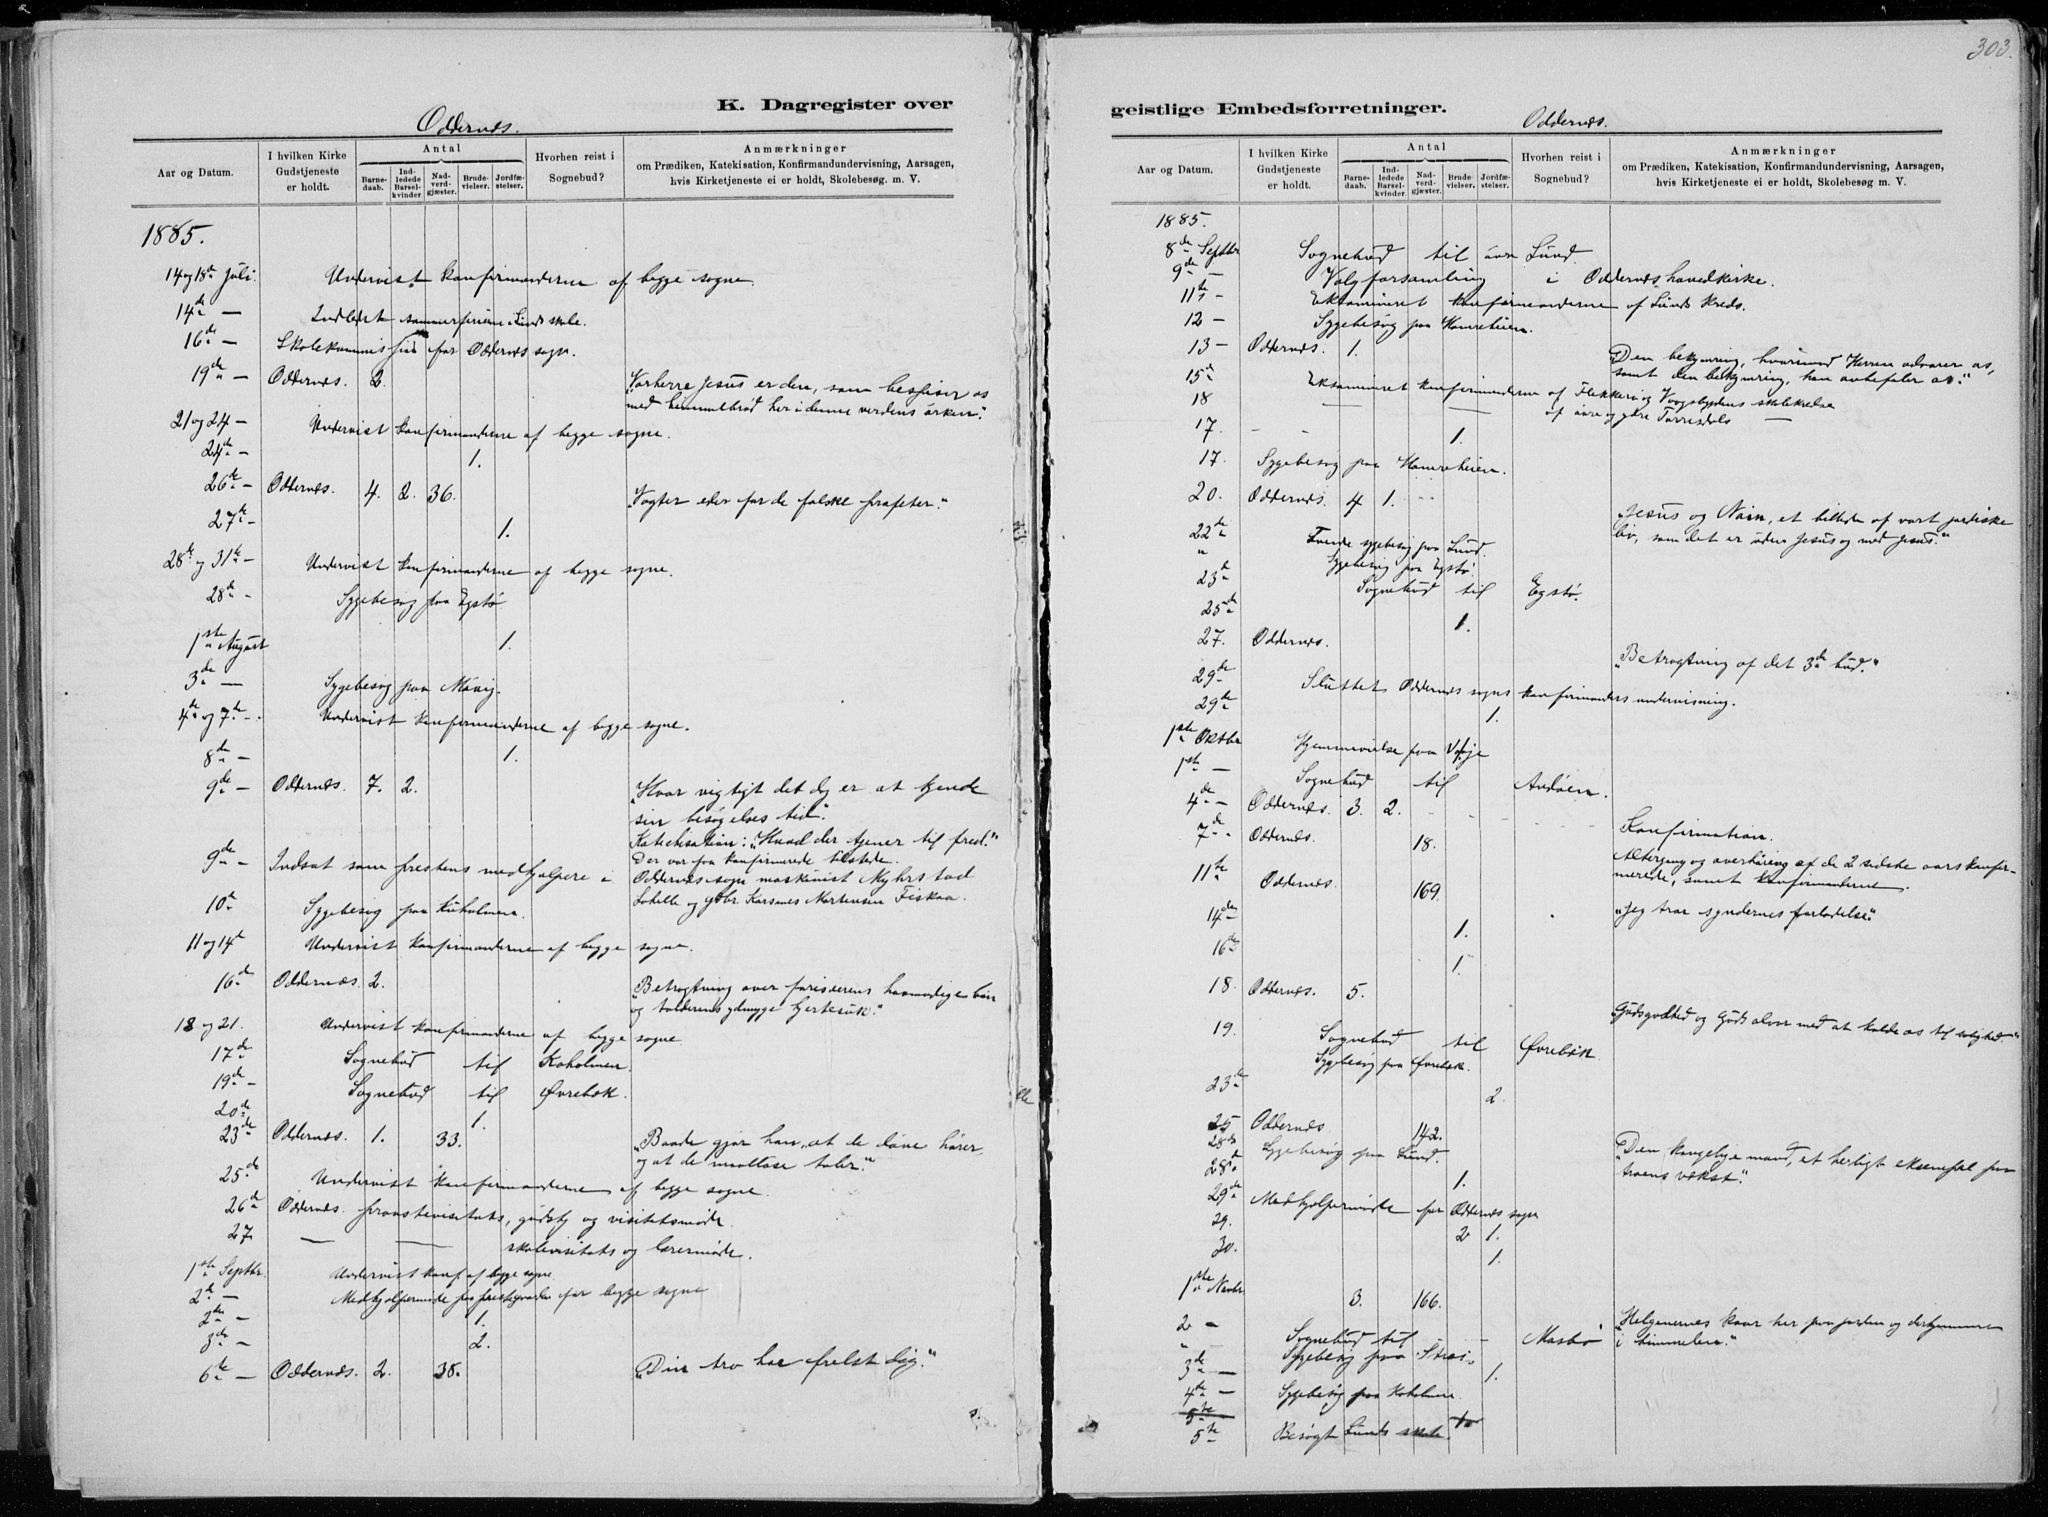 K. Dagregister over
Oddernes.
Aar og Datum.
I hvilken Kirke Gudstjeneste er holdt.
Antal
Barnedaab.
Indledede Barselkvinder.
Nadverdgjæster.
Brudevielser.
Jordfæstelser.
Hvorhen reist i Sognebud?
Anmærkninger
om Prædiken, Katekisation, Konfirmandundervisning, Aarsagen,
hvis Kirketjeneste ei er holdt, Skolebesøg m. V.
1885.
14 og 18de Juli. Undervist konfirmanderne af begge sogne
14de — Indledet sommerferierne i Lunds skole.
16de — Skolekommission for Oddernes sogn.
19de — Oddernes. 2. "Vorherre Jesus er den, som bespiser os
med himmelbrød her i denne verdens ørken".
21 og 24 — Undervist konfirmanderne af begge sogne.
24de — 1.
26de — Oddernes. 4. 2. 36. "Vogter eder for de falske profeter."
27de — 1.
28de og 31te — Undervist konfirmanderne af begge sogne.
28de — Sygebesøg paa Egstø
1ste August 1.
3de — Sygebesøg paa Møvig.
4de og 7de —. Undervist konfirmanderne af begge sogne.
8de — 1.
9de — Oddernes. 7. 2. "Hvor vigtigt det dog er at kjende
sin besøgelses tid".
Katechisation: "Hvad der tjener til fred."
Der var faa konfirmerede tilstede.
9de — Indsat som prestens medhjælpere i Oddernes sogn maskinist Myhrstad
Lohelle og gbr. Karsnes Mortensen Fiskaa.
10de Sygebesøg paa Kuholmen.
11 og 14de Undervist konfirmanderne af begge sogne.
16de Oddernæs 2. "Betragtning over farisæerens hovmodige bøn
og tolderens ydmyge hjertesuk."
18 og 21. Undervist konfirmanderne af begge sogne
17de Sognebud til Koholmen.
19de — Sognebud til Øvrebøk.
20de 1.
23de Oddernes. 1. 33. "Baade gjør han, at de døve hører
og at de maalløse taler."
25de Undervist konfirmanderne af begge sogne.
26de Oddernes provstevisitats, gudstj og visitatsmøde.
27 — — skolevisitats og lærermøde.
1ste Septbr. Undervist konf. af begge sogne.
2de — Medhjælpermøde paa prestegaarden for begge sogne
2de — 1.
3de — 2.
6te — Oddernes. 2. 38. "Din tro har frelst dig."
303.
geistlige Embedsforretninger.
Oddernes.
Aar og Datum.
I hvilken Kirke Gudstjeneste er holdt.
Antal
Barnedaab.
Indledede Barselkvinder.
Nadverdgjæster.
Brudevielser.
Jordfæstelser.
Hvorhen reist i Sognebud?
Anmærkninger
om Prædiken, Katekisation, Konfirmandundervisning, Aarsagen,
hvis Kirketjeneste ei er holdt, Skolebesøg m. V.
1885.
8de Septbr Sognebud til øvre Lund.
9de — Valgforsamling i Oddernes hovedkirke.
11te — Eksamineret konfirmanderne af Lunds kreds.
12 — Sygebesøg paa Hamreheien.
13 — Oddernes. 1. "Den bekymring, hvorimod Herren advarer os,
samt den bekymring, han anbefaler os."
15de Eksamineret konfirmanderne af Flekkerø og Vaagsbygdens skolekredse
18 — — af øvre og ytre Torrisdals —
17. 1.
17. Sygebesøg paa Hamreheien.
20. Oddernes. 4 1. "Jesus og Nain, et billede af vort jordiske
liv, som det er uden Jesus og med Jesus."
22de Tvende sygebesøg paa Lund.
" Sygebesøg paa Egstø.
23de Sognebud til Egstø.
25de 1.
27. Oddernes. "Betragtning af det 3de bud."
29de Sluttet Oddernes sogns konfirmanders undervisning.
29de 1.
1ste Oktbr Hjemmevielse paa
1ste — Sognebud til Andøen.
4de — Oddernes. 3. 2. Konfirmation.
7de Oddernes. 18. Altergang og overhøring af de 2 sidste aars konfirmerede, samt konfirmanderne.
11te Oddernes. 169. "Jeg tror syndernes forladelse".
14de 1.
16de 1.
18. Oddernes. 5. Guds godhed og Guds alvor med at kalde os til salighed."
19. Sognebud til Øvrebøk.
Sygebesøg paa Øvrebøk.
23de 2.
25 Oddernes. 142. "Den kongelige mand, et herligt eksempel paa
troens vækst".
28de Sygebesøg paa Lund.
28de 1.
29de Medhjælpermøde for Oddernes sogn
29. 2 1.
30. 1.
1ste Novbr 3. 166. "Helgenernes kaar her paa jorden og der hjemme
i himmelen."
2 — Sognebud til — — Mosbø
" — Sygebesøg paa
3de — 1.
4de — Sygebesøg paa Koholmen.
5te
5te Besøgt Lunds skole.